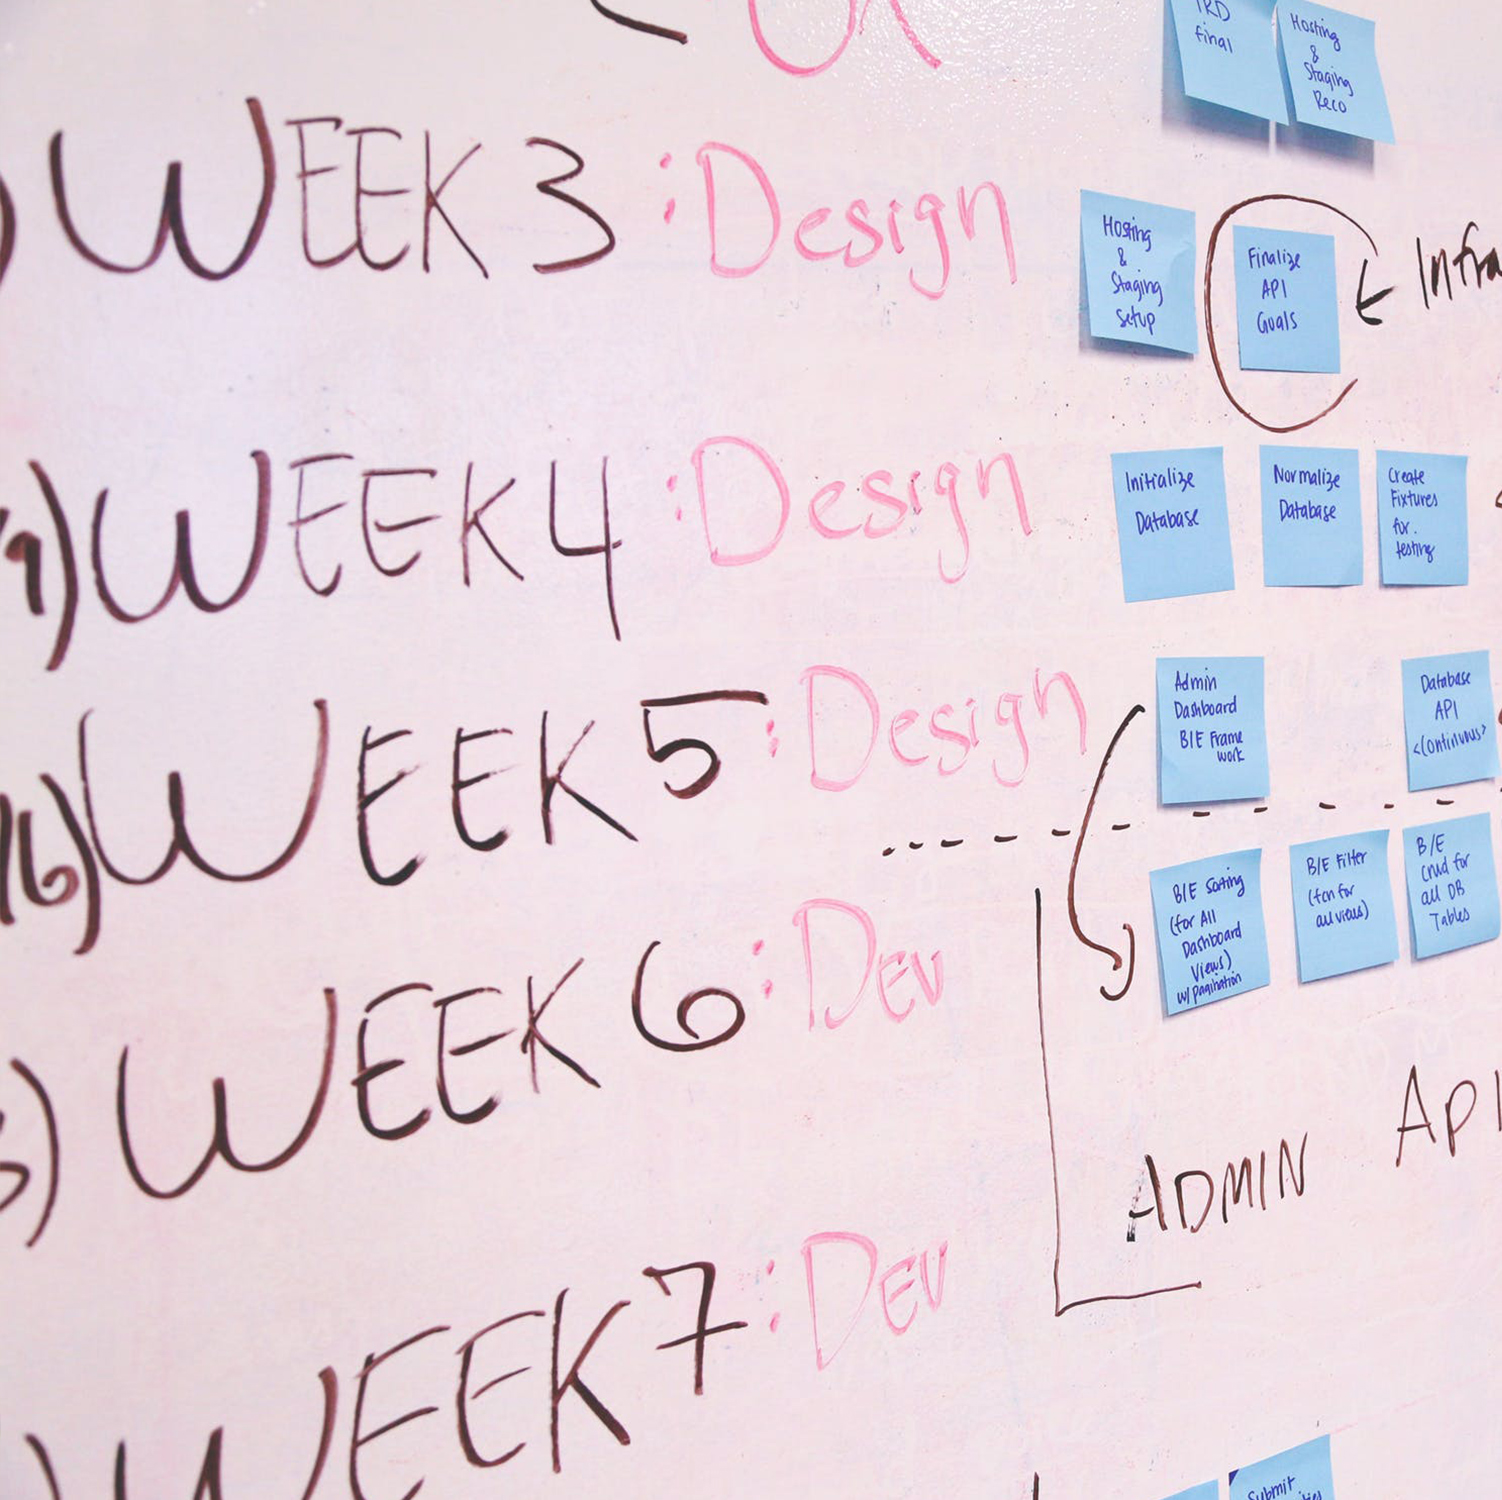 UX
TRD
final
Hosting
&
Staging
Reco
WEEK 3 : Design
Hosting
&
Staging
Setup
Finalize
API
Goals
Infra
9) WEEK 4 : Design
Initialize
Database
Normalize
Database
Create
Fixtures
for.
testing
16) WEEK 5 : Design
Admin
Dashboard
B/E Frame
work
Database
API
<Continuous>
WEEK 6 : DEV
B/E Sorting
(for All
Dashboard
Views)
w/ Pagination
B/E Filter
(fcn for
all views)
B/E
CRUD for
all DB
Tables
ADMIN
API
WEEK 7 : DEV
WEEK
Submit